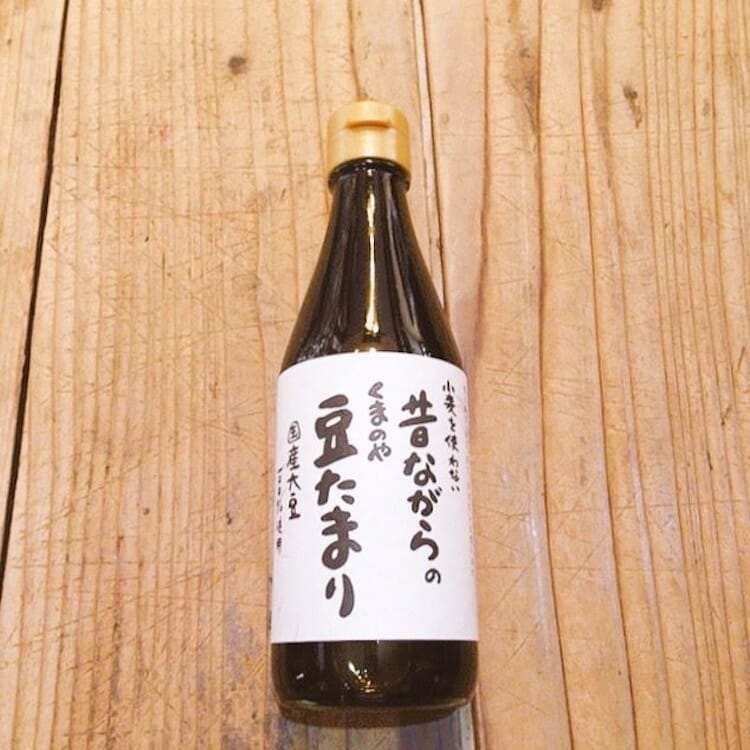 小麦を使わない
昔ながらの
くまのや
豆たまり
国産大豆
100%使用